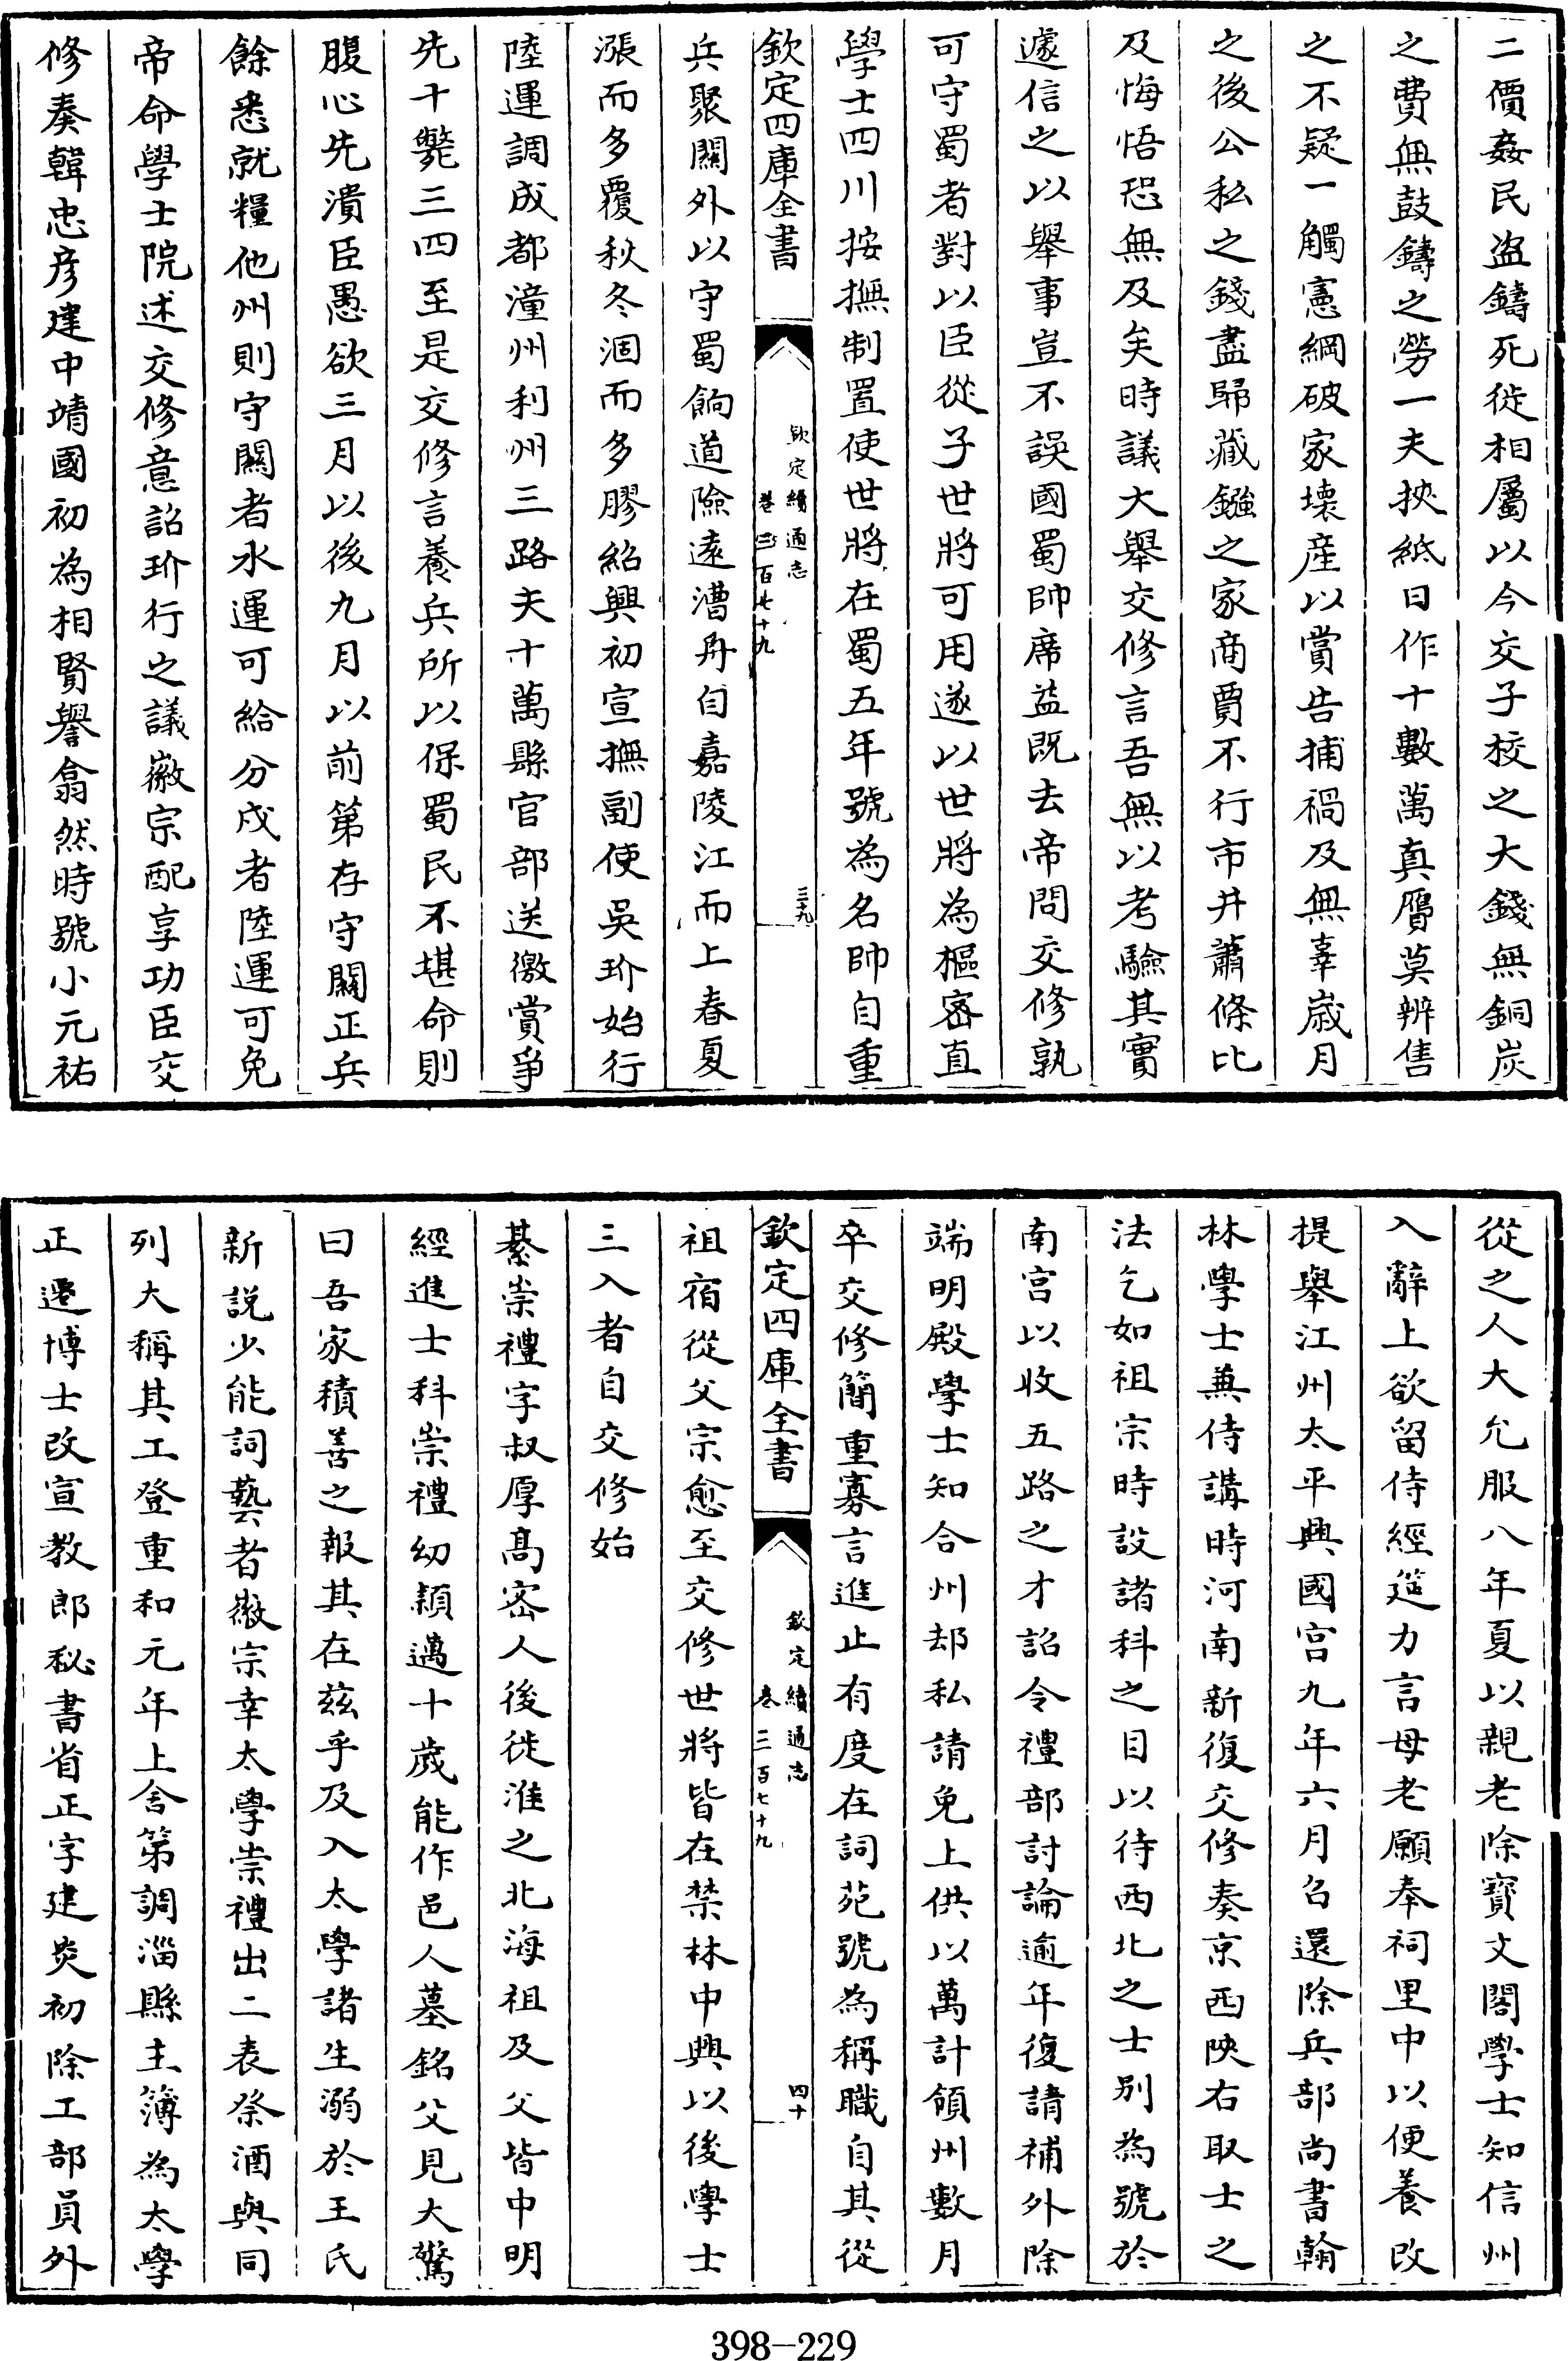 二價姦民盗鑄死徙相屬以今交子校之大錢無銅炭
之費無鼓鑄之勞一夫挾紙日作十數萬真贋莫辨售
之不疑一觸憲綱破家壊産以賞告捕禍及無辜嵗月
之後公私之錢盡歸藏鏹之家商賈不行市井蕭條比
及悔悟恐無及矣時議大舉交修言吾無以考驗其實
遽信之以舉事豈不誤國蜀帥席益既去帝問交修孰
可守蜀者對以臣從子世將可用遂以世將為樞密直
學士四川按撫制置使世將在蜀五年號為名帥自重
欽定四庫全書
欽定續通志
卷三百七十九
三十九
兵聚關外以守蜀餉道險逺漕舟自嘉陵江而上春夏
漲而多覆秋冬涸而多膠紹興初宣撫副使吳玠始行
陸運調成都潼州利州三路夫十萬縣官部送激賞爭
先十斃三四至是交修言養兵所以保蜀民不堪命則
腹心先潰臣愚欲三月以後九月以前第存守關正兵
餘悉就糧他州則守關者水運可給分戍者陸運可免
帝命學士院述交修意詔玠行之議徽宗配享功臣交
修奏韓忠彦建中靖國初為相賢譽翕然時號小元祐
從之人大允服八年夏以親老除寳文閣學士知信州
入辭上欲留侍經筵力言母老願奉祠里中以便養改
提舉江州太平興國宫九年六月召還除兵部尚書翰
林學士兼侍講時河南新復交修奏京西陜右取士之
法乞如祖宗時設諸科之目以待西北之士别為號於
南宫以收五路之才詔令禮部討論逾年復請補外除
端明殿學士知合州却私請免上供以萬計領州數月
卒交修簡重寡言進止有度在詞苑號為稱職自其從
欽定四庫全書
欽定續通志
卷三百七十九
四十
祖宿從父宗愈至交修世將皆在禁林中興以後學士
三入者自交修始
綦崇禮字叔厚髙密人後徙淮之北海祖及父皆中明
經進士科崇禮幼穎邁十歲能作邑人墓銘父見大驚
曰吾家積善之報其在兹乎及入太學諸生溺於王氏
新説少能詞藝者徽宗幸太學崇禮出二表祭酒與同
列大稱其工登重和元年上舍第調淄縣主簿為太學
正遷博士改宣教郎秘書省正字建炎初除工部員外
398-229